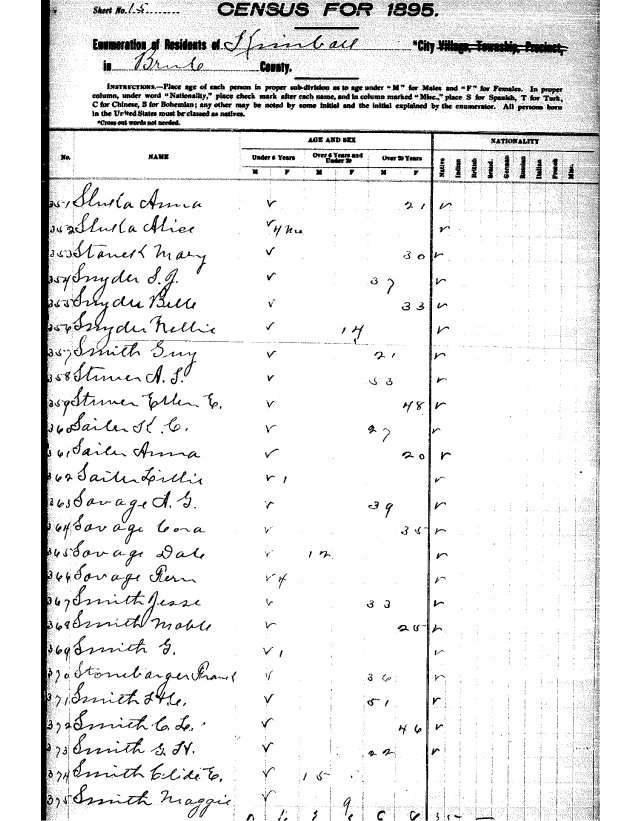 Sheet No. 15
CENSUS FOR 1895.
Enumeration of Residents of Kimball *City Village, Township, Precinct,
in Brule County.
INSTRUCTIONS.—Place age of each person in proper sub-division as to age under "M" for Males and "F" for Females. In proper
column, under word "Nationality," place check mark after each name, and in column marked "Misc.," place S for Spanish, T for Turk,
C for Chinese, B for Bohemian; any other may be noted by some initial and the initial explained by the enumerator. All persons born
in the United States must be classed as natives.
*Cross out words not needed.
AGE AND SEX NATIONALITY
No. NAME Under 6 Years Over 6 Years and Under 20 Over 20 Years
M F M F M F Native Indian British Scand. German Russian Italian French Misc.
351 Sluska Anna ✓ 21 ✓
352 Sluska Alice ✓ 4 mo ✓
353 Stanek Mary ✓ 30 ✓
354 Snyder S. J. ✓ 37 ✓
355 Snyder Belle ✓ 33 ✓
356 Snyder Nellie ✓ 14 ✓
357 Smith Guy ✓ 21 ✓
358 Struver A. S. ✓ 53 ✓
359 Struver Ellen E. ✓ 48 ✓
360 Sailer K. C. ✓ 27 ✓
361 Sailer Anna ✓ 20 ✓
362 Sailer Lillie ✓ 1 ✓
363 Savage A. G. ✓ 39 ✓
364 Savage Cora ✓ 35 ✓
365 Savage Dale ✓ 12 ✓
366 Savage Fern ✓ 4 ✓
367 Smith Jesse ✓ 33 ✓
368 Smith Mable ✓ 25 ✓
369 Smith G. ✓ 1 ✓
370 Stonebarger Frank ✓ 36 ✓
371 Smith ✓ 51 ✓
372 Smith C. L. ✓ 46 ✓
373 Smith G. H. ✓ 22 ✓
374 Smith Elide E. ✓ 15
375 Smith Maggie ✓ 9